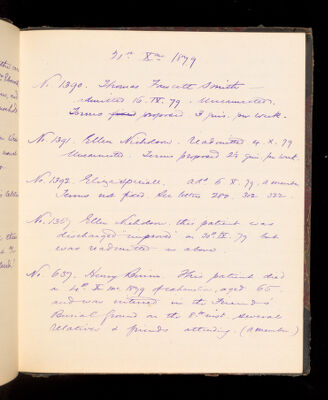 31st Xmo 1879
No. 1390. Thomas Fawcett Smith —
admitted 16. IX. 79. Unconnected.
Terms fixed proposed 3 guin. per week.
No. 1391. Ellen Nicholson. readmitted 4. X. 79
Unconnected. Terms proposed 2½ guin. per week.
No. 1392. Eliza . adm. 6. X. 79. a member
Terms not fixed. See letters 280. 302. 322.
No. 1361. Ellen Nicholson. this patient was
discharged "improved" on 20th IX. 79 but
was readmitted as above
No. 637. Henry . This patient died
on 4th X mo. 1879 of exhaustion, aged 65
and was interred in the Friends'
Burial Ground on the 8th inst. several
relatives & friends attending. (a member)